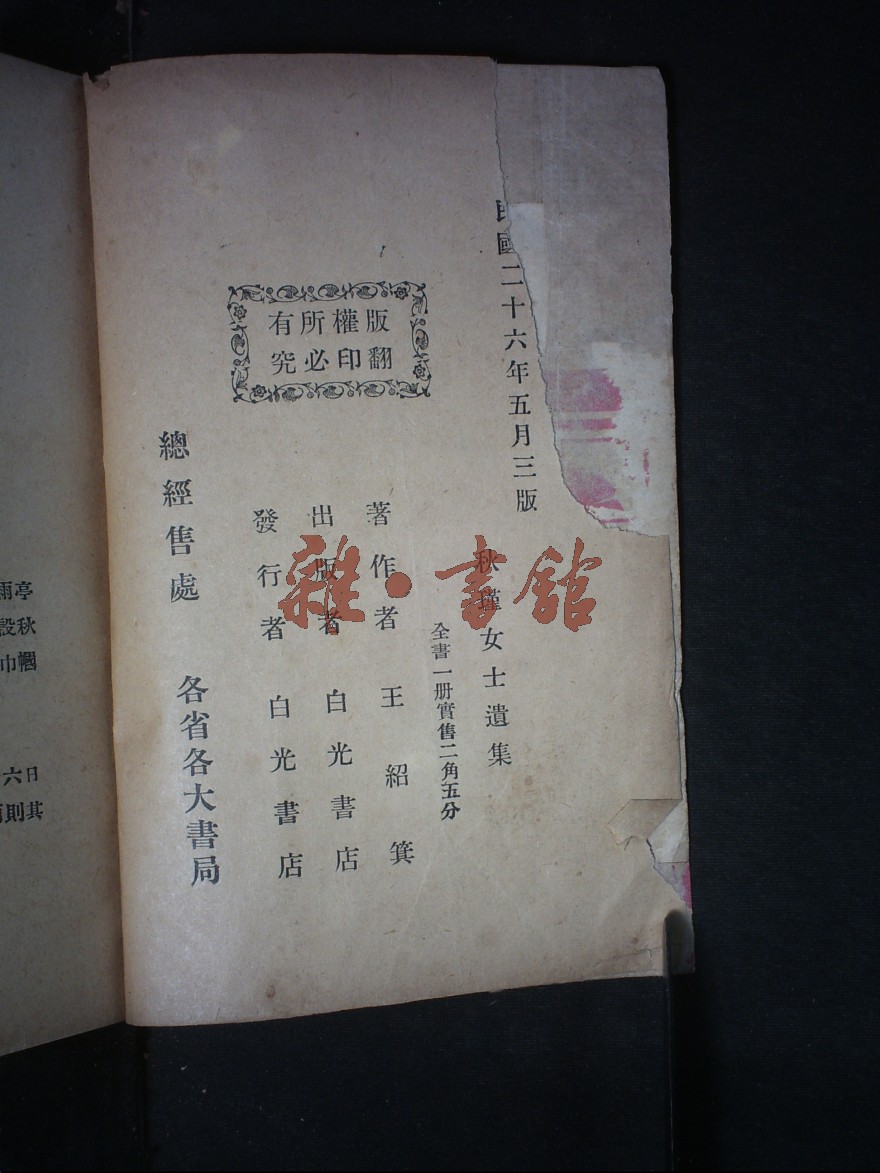 民國二十六年五月三版
秋瑾女士遺集
全書一册實售二角五分
著作者 王紹箕
出版者 白光書店
發行者 白光書店
總經售處 各省各大書局
版權所有
翻印必究
雜·書館
雨亭
設秋
巾幗
六日
則其